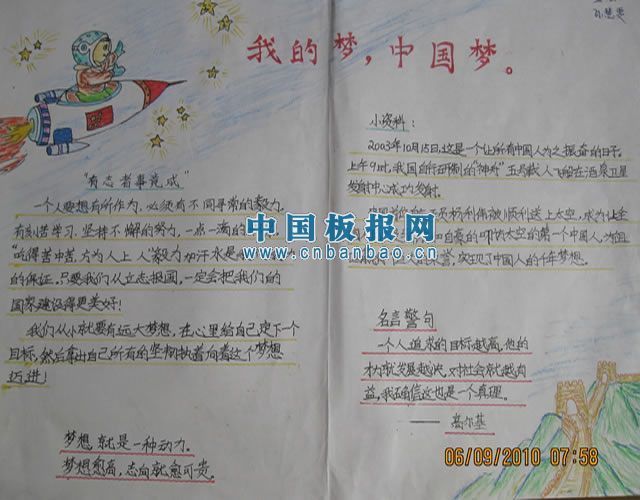 我的梦，中国梦。
"有志者事竟成"
一个人要想有所作为，必须有不同寻常的毅力，
有刻苦学习，坚持不懈的努力，一点一滴的
"吃得苦中苦，方为人上人"毅力加汗水是
的保证，只要我们从立志报国，一定会把我们的
国家建设得更美好！
我们从小就要有远大梦想，在心里给自己定下一个
目标，然后拿出自己所有的坚韧执着向着这个梦想
迈进！
梦想就是一种动力。
梦想愈高，志向就愈可贵。
小资料：
2003年10月15日，这是一个让所有中国人为之振奋的日子。
上午9时，我国自行研制的"神舟"五号载人飞船在酒泉卫星
发射中心成功发射。
杨利伟被顺利送上太空，成为让
太空的第一个中国人，为祖
实现了中国人的千年梦想。
名言警句
一个人追求的目标越高，他的
才力就发展越快，对社会就越有
益，我确信这也是一个真理。
——高尔基
中国板报网
www.cnbanbao.cn
06/09/2010 07:58